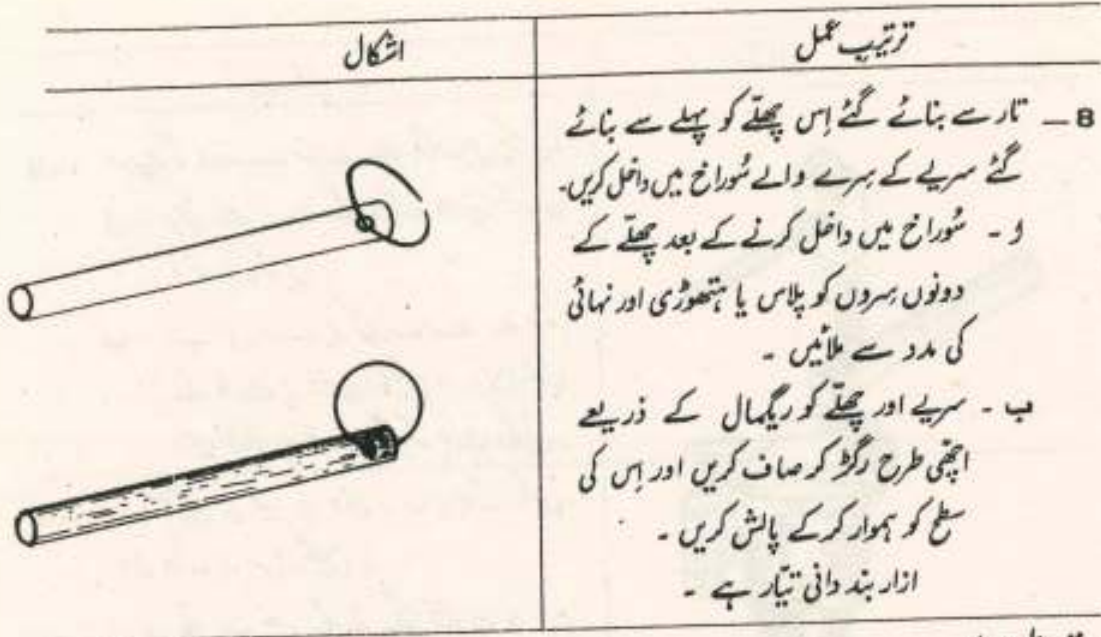 ترتیب عمل
اشکال
8 ـ تار سے بنائے گئے اِس چھلّے کو پہلے سے بنائے
گئے سریے کے سِرے والے سُوراخ میں داخل کریں۔
ا ۔ سُوراخ میں داخل کرنے کے بعد چھلّے کے
دونوں سِروں کو پلاس یا ہتھوڑی اور نہائی
کی مدد سے ملائیں ۔
ب ۔ سریے اور چھلّے کو ریگمال کے ذریعے
اچھّی طرح رگڑ کر صاف کریں اور اِس کی
سطح کو ہموار کر کے پالش کریں ۔
ازار بند دانی تیّار ہے ۔